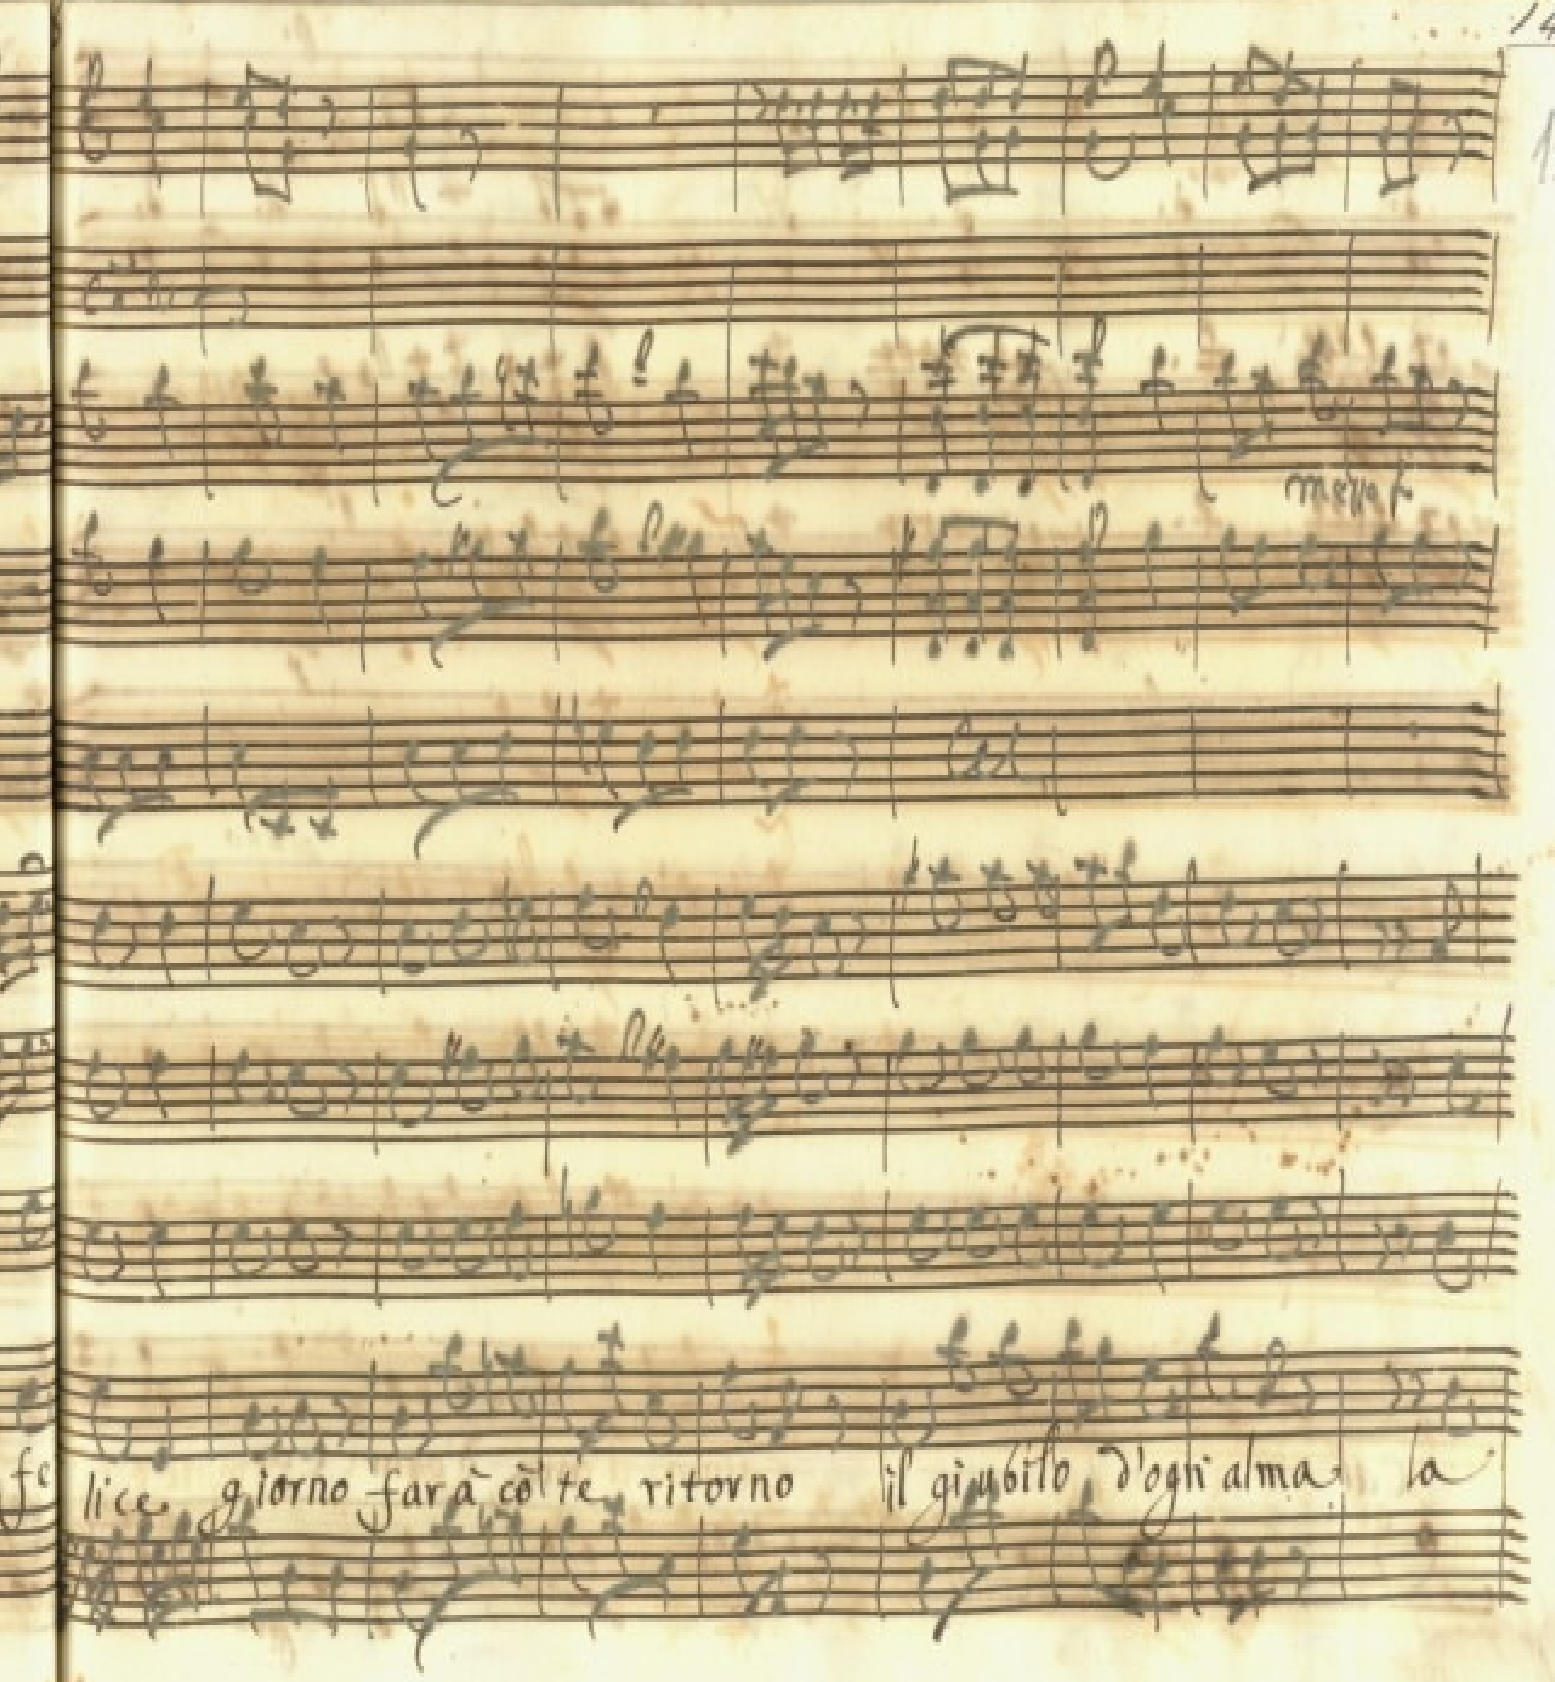 14
mezzo f
fe
lice giorno farà cō te ritorno il giubilo d'ogni alma la